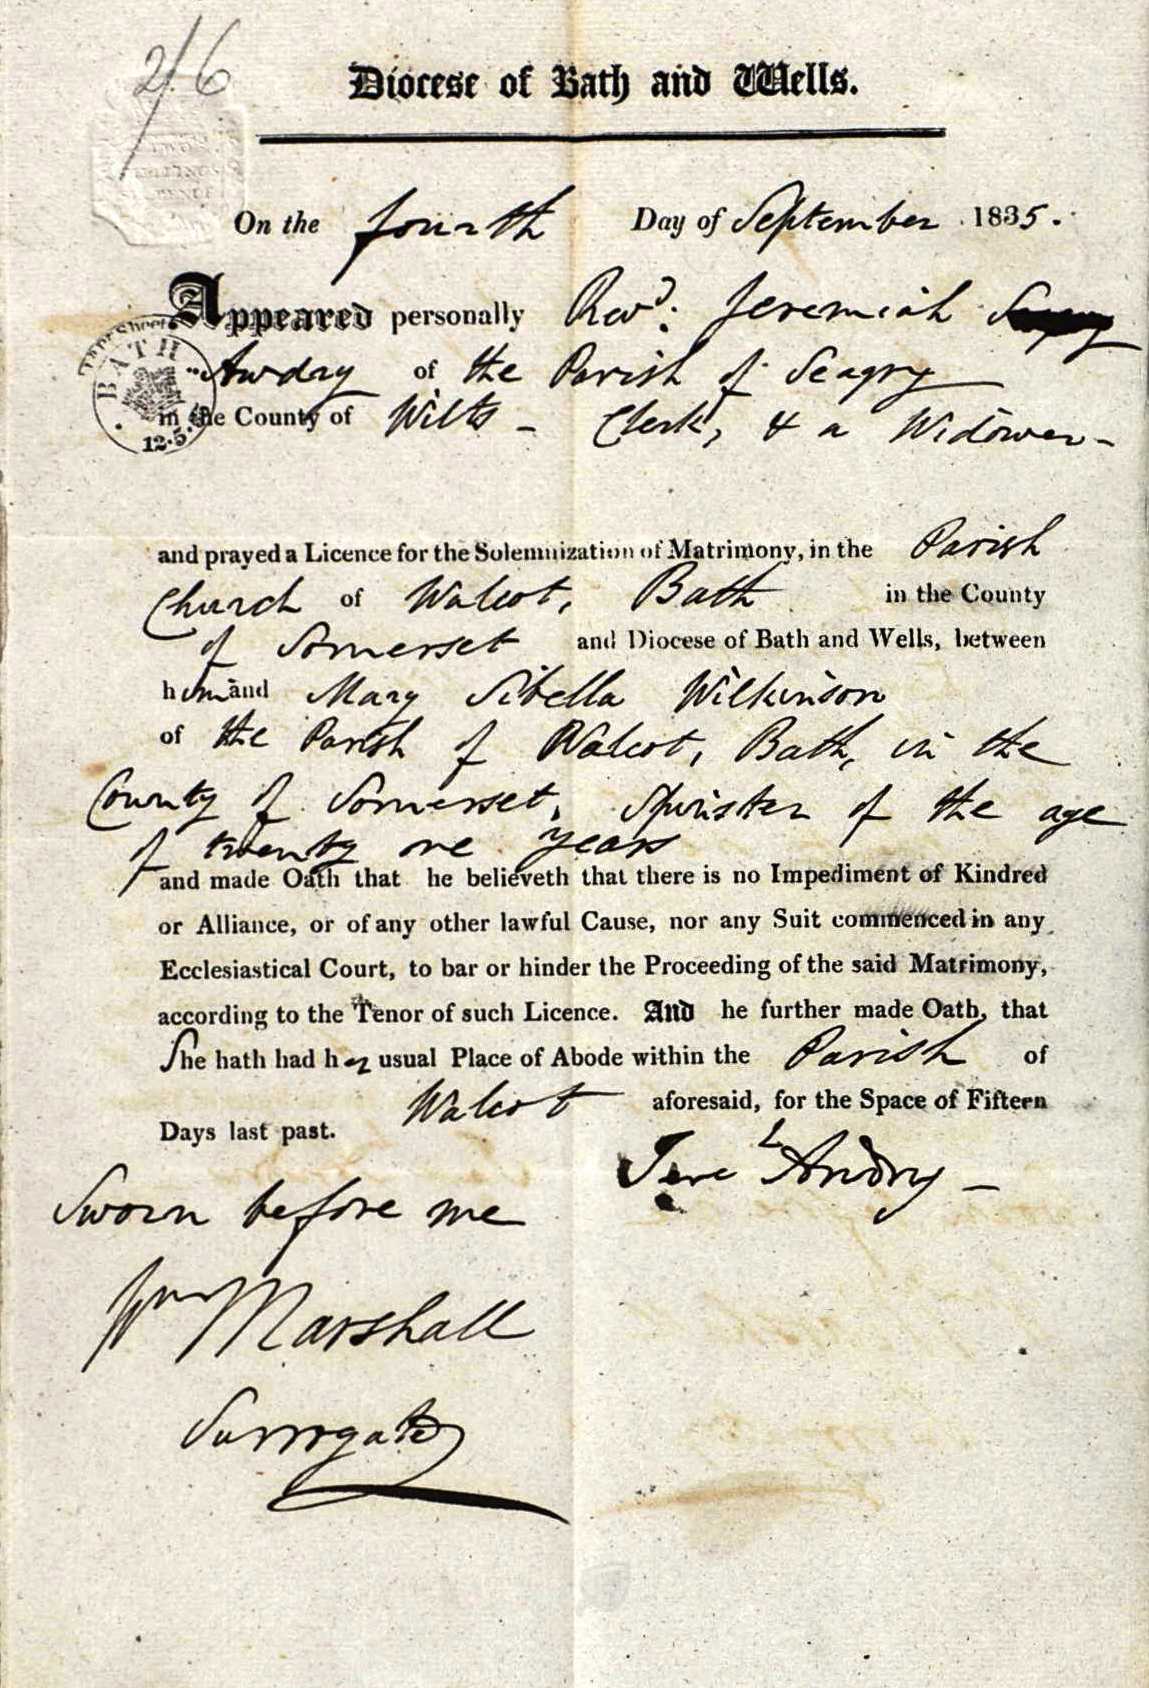 2/6
Diocese of Bath and Wells.
On the fourth Day of September 1835.
Appeared personally Revd: Jeremiah
Awdry of the Parish of Seagry
in the County of Wilts - Clerk, & a Widower -
BATH
12.5.
and prayed a Licence for the Solemnization of Matrimony, in the Parish
Church of Walcot, Bath in the County
of Somerset and Diocese of Bath and Wells, between
him and Mary Sibella Wilkinson
of the Parish of Walcot, Bath, in the
County of Somerset, Spinster of the age
of twenty one years
and made Oath that he believeth that there is no Impediment of Kindred
or Alliance, or of any other lawful Cause, nor any Suit commenced in any
Ecclesiastical Court, to bar or hinder the Proceeding of the said Matrimony,
according to the Tenor of such Licence. And he further made Oath, that
She hath had her usual Place of Abode within the Parish of
Walcot aforesaid, for the Space of Fifteen
Days last past.
Jereh Awdry -
Sworn before me
Wm Marshall
Surrogate